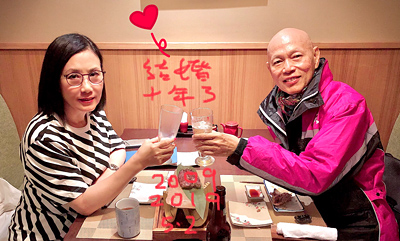 結婚
十年了
2009
2019
5.2